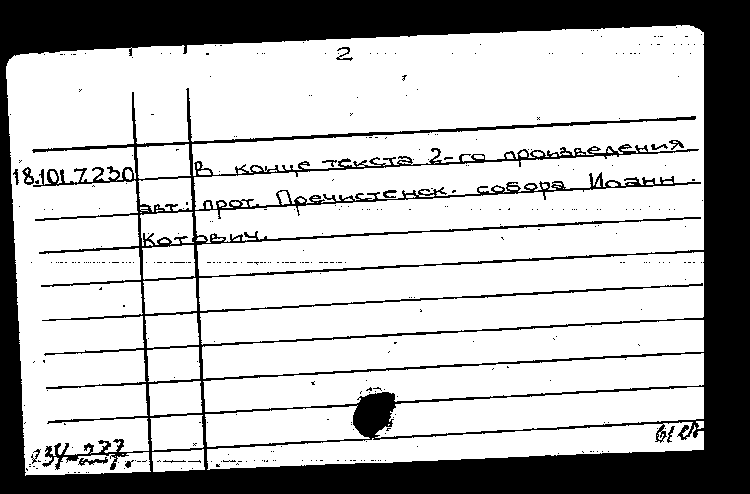 2
18.101.7.230 В конце текста 2-го произведения
авт.: прот. Пречистенск. собора Иоанн
Котович.